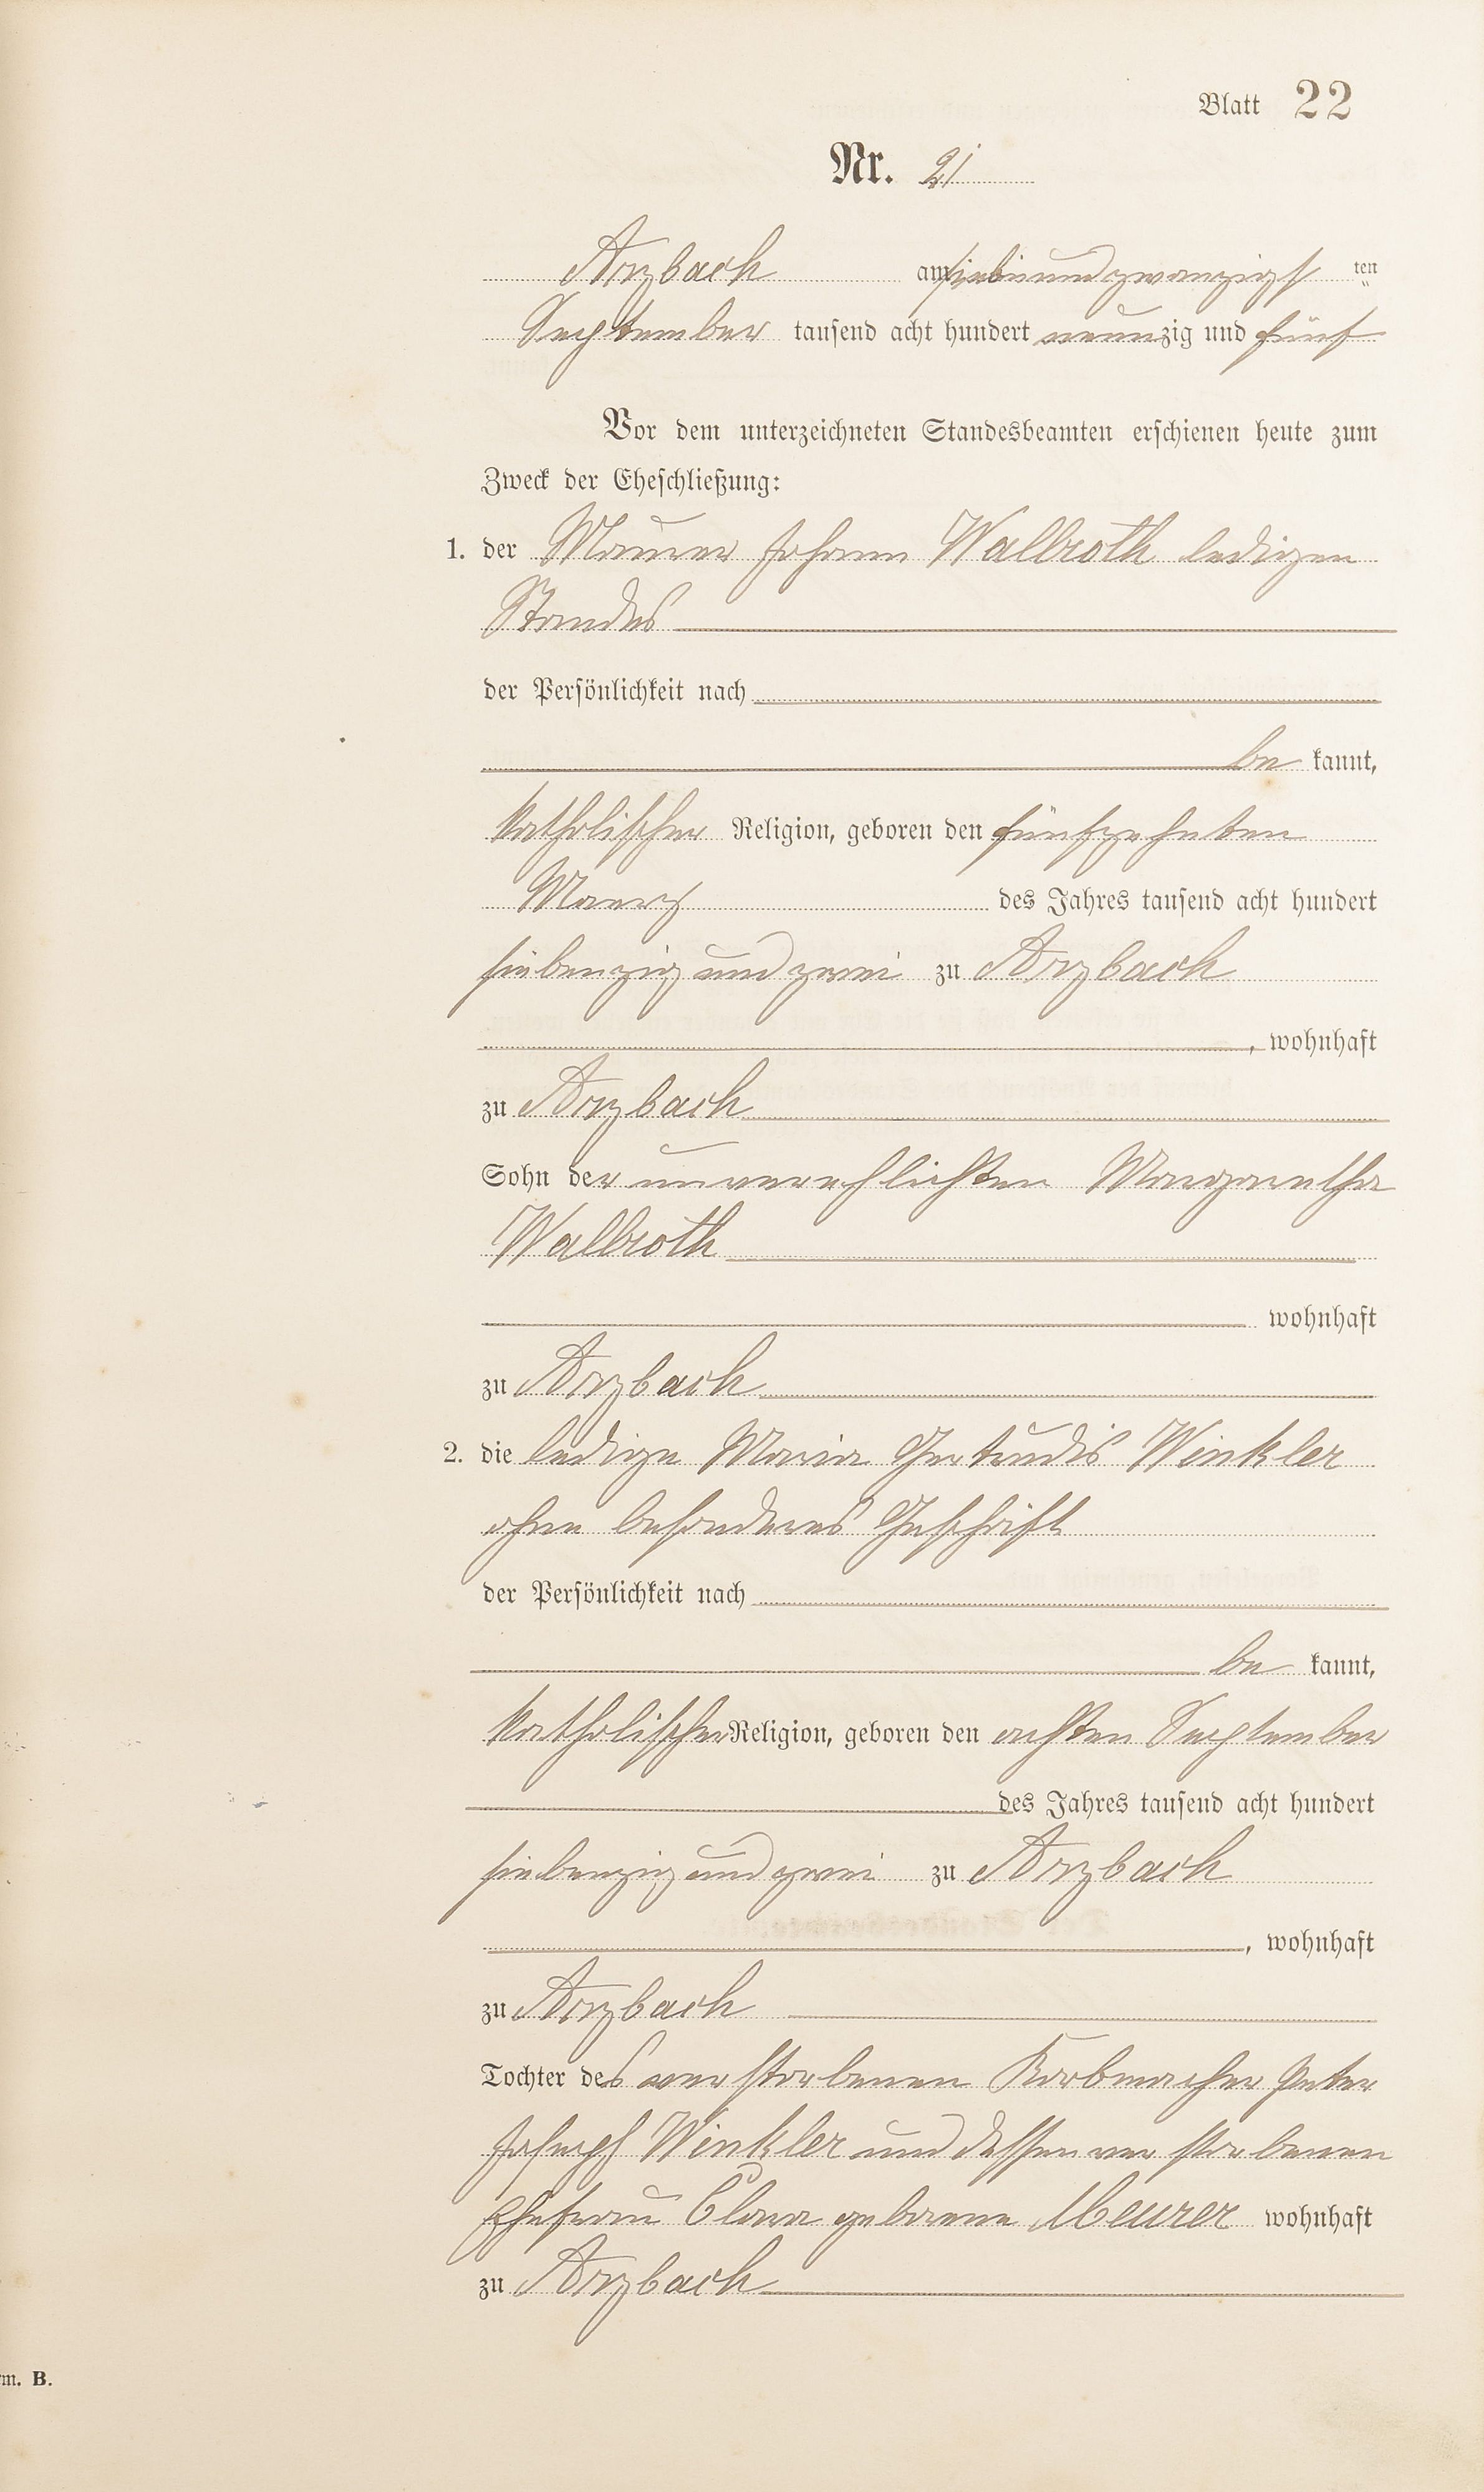 Blatt 22
Nr. 21
Arzbach am siebenundzwanzigsten
September tausend acht hundert neunzig und fünf
Vor dem unterzeichneten Standesbeamten erschienen heute zum
Zweck der Eheschließung:
1. der Maurer Johann Wallroth ledigen
Standes
der Persönlichkeit nach
be kannt,
katholischer Religion, geboren den fünfzehnten
Maerz des Jahres tausend acht hundert
siebenzig und zwei zu Arzbach
, wohnhaft
zu Arzbach
Sohn der unverehlichten Margaretha
Wallroth
wohnhaft
zu Arzbach
2. die ledige Maria Gertrudis Winkler
ohne besonderes Geschäft
der Persönlichkeit nach
be kannt,
katholischer Religion, geboren den achten September
des Jahres tausend acht hundert
siebenzig und zwei zu Arzbach
, wohnhaft
zu Arzbach
Tochter des verstorbenen Korbmacher Peter
Joseph Winkler und dessen verstorbenen
Ehefrau Clara geborene Meurer wohnhaft
zu Arzbach
m. B.